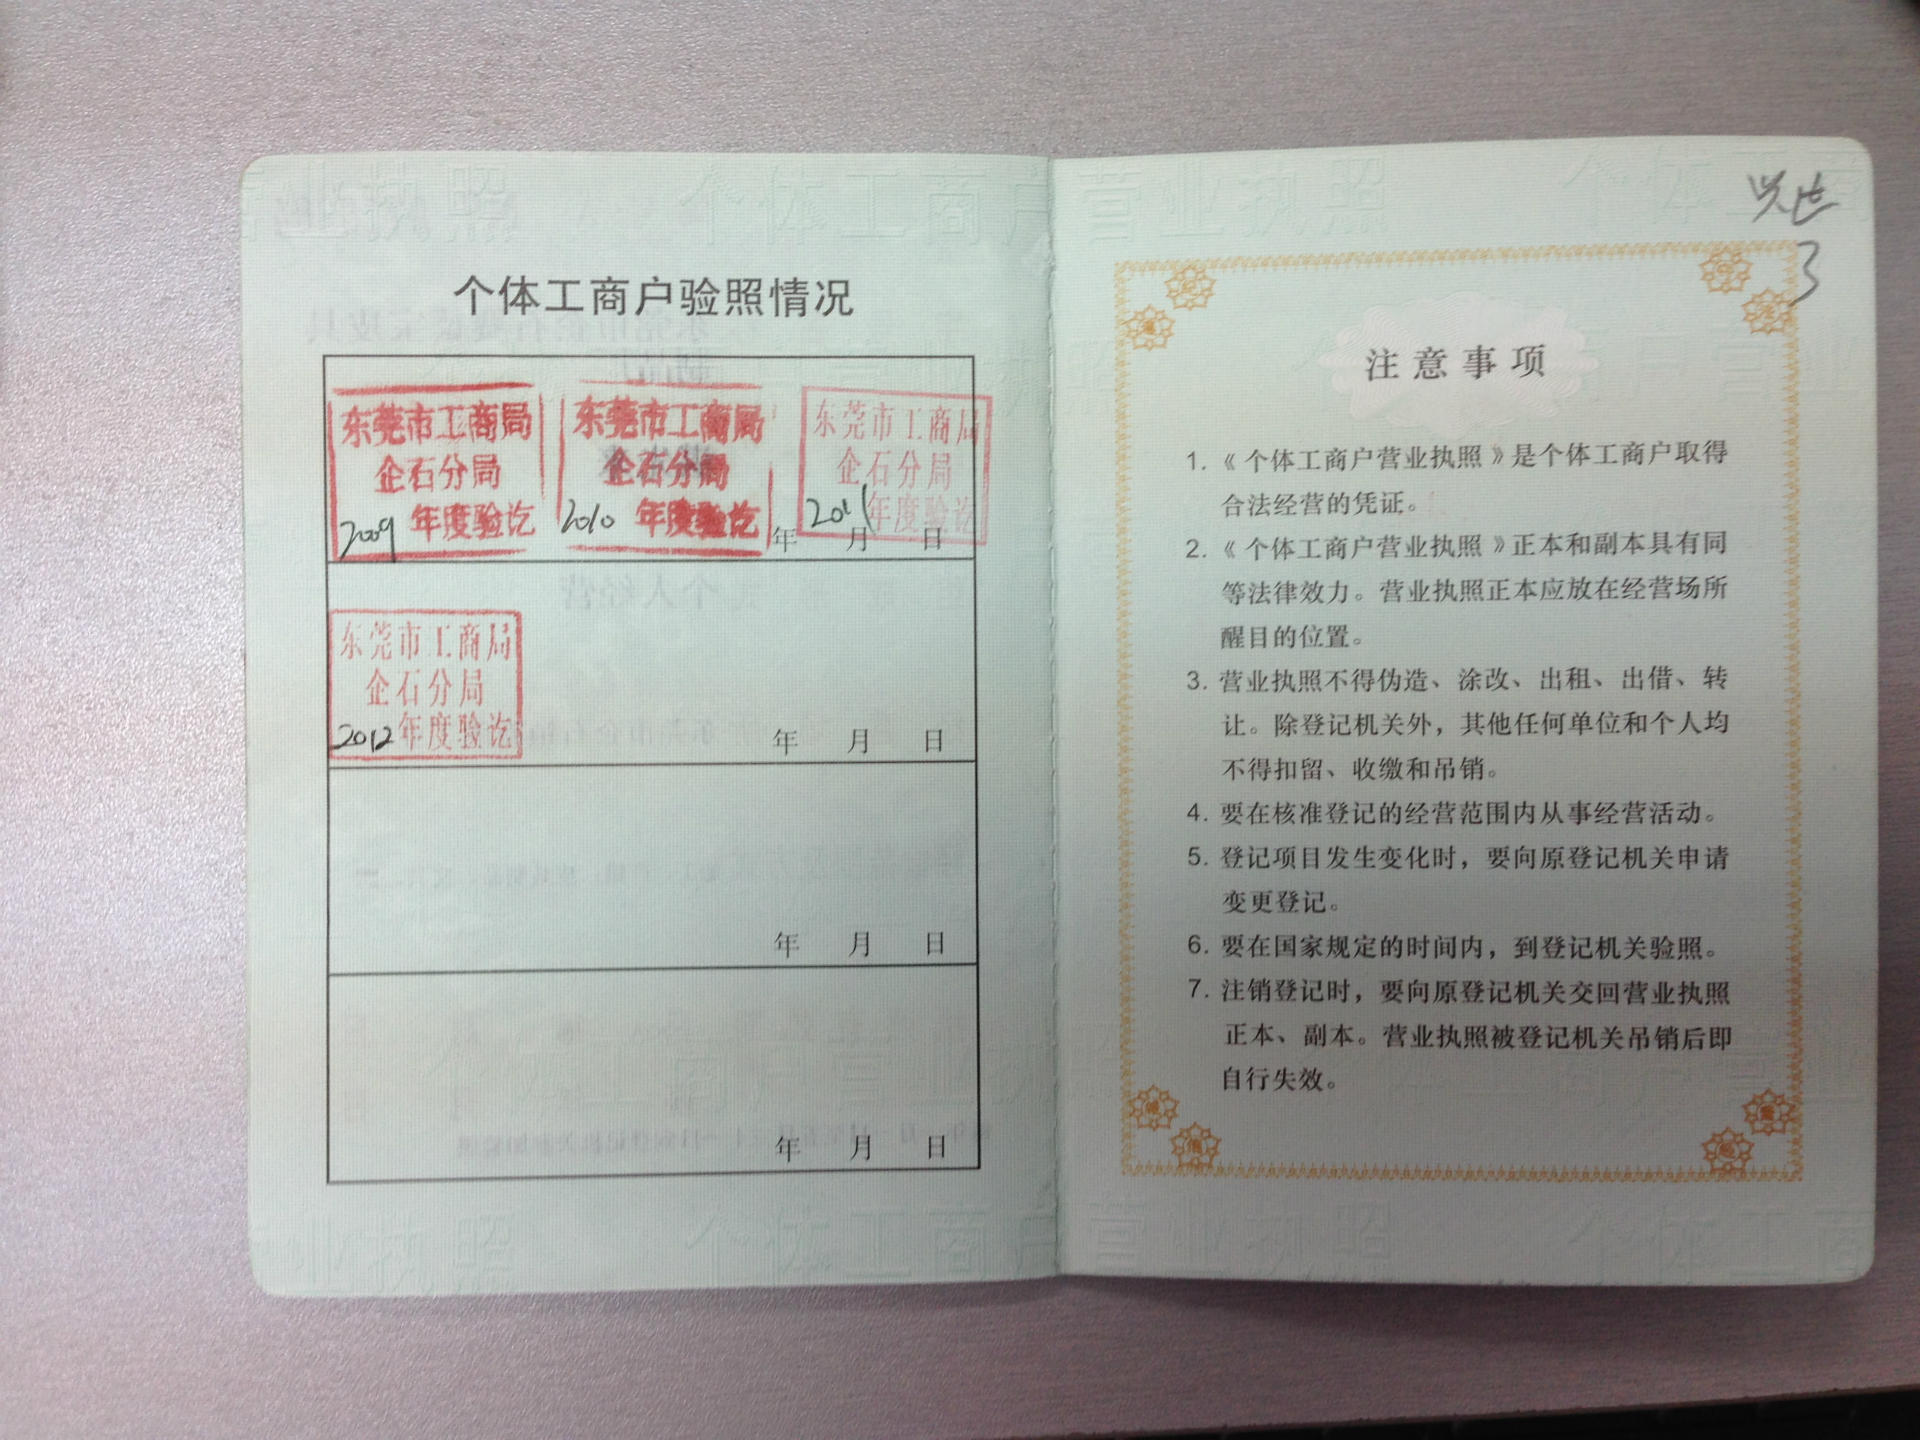 个体工商户验照情况
东莞市工商局
企石分局
2009 年度验讫
东莞市工商局
企石分局
2010 年度验讫
东莞市工商局
企石分局
2011 年度验讫
年 月 日
东莞市工商局
企石分局
2012 年度验讫
年 月 日
年 月 日
年 月 日
3
注意事项
1.《个体工商户营业执照》是个体工商户取得
合法经营的凭证。
2.《个体工商户营业执照》正本和副本具有同
等法律效力。营业执照正本应放在经营场所
醒目的位置。
3. 营业执照不得伪造、涂改、出租、出借、转
让。除登记机关外，其他任何单位和个人均
不得扣留、收缴和吊销。
4. 要在核准登记的经营范围内从事经营活动。
5. 登记项目发生变化时，要向原登记机关申请
变更登记。
6. 要在国家规定的时间内，到登记机关验照。
7. 注销登记时，要向原登记机关交回营业执照
正本、副本。营业执照被登记机关吊销后即
自行失效。